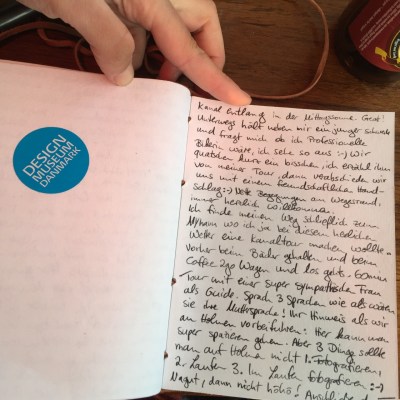 DESIGN
MUSEUM
DANMARK
Kanal entlang in der Mittagssonne. Great!
Unterwegs hält neben mir ein junger
und fragt mich ob ich Professionelle
Bikerin wäre, ich sehe so aus :-) Wir
quatschen kurz ein bisschen, ich erzähl ihm
von meiner Tour, dann verabschieden wir
uns mit einem freundschaftlichen Hand-
schlag :-) Nette Begegnungen am Wegesrand,
immer herzlich willkommen.
Ich finde meinen Weg schließlich zum
Nyhavn wo ich ja bei diesem herrlichen
Wetter eine Kanaltour machen wollte -
vorher beim Bäcker gehalten und beim
Coffee 2go Wagen und los gehts. 60min
Tour mit einer super sympathischen Frau
als Guide. Sprach 3 Sprachen wie als wären
sie ihre Muttersprache! Ihr Hinweis als wir
an Holmen vorbeifuhren: Hier kann man
super spazieren gehen. Aber 3 Dinge sollte
man auf Holmen nicht 1. Fotografieren,
2. Laufen 3. Im Laufen fotografieren :-)
Na gut, dann nicht